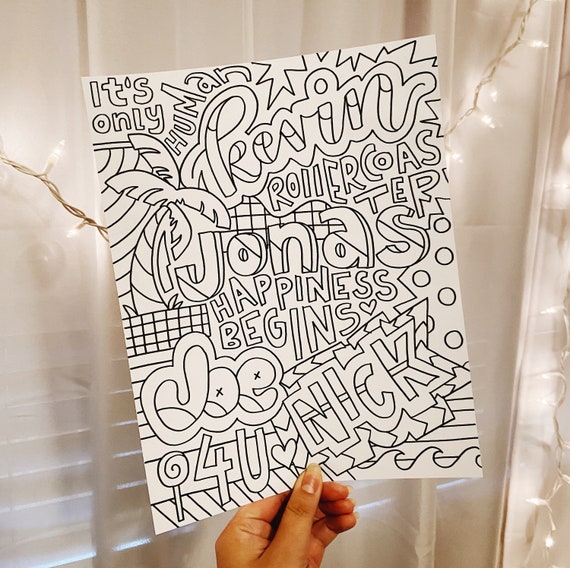 It's
only
HUMAN
kevin
ROLLERCOAS
TER
Jonas
HAPPINESS
BEGINS
Joe
NICK
i4U